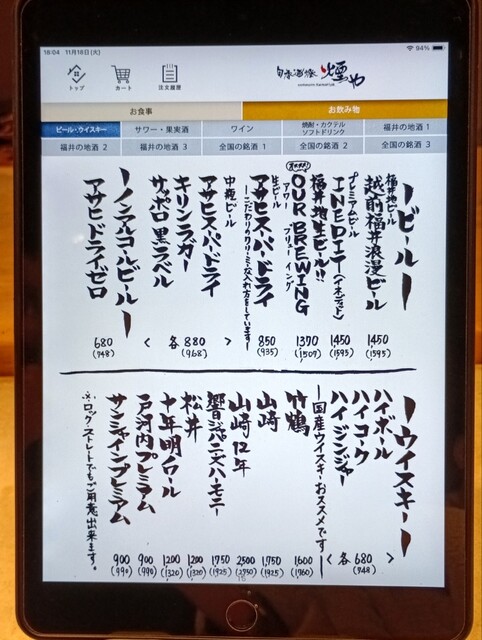 18:04 11月18日(火)
94%
トップ
カート
注文履歴
煙や
お食事
お飲み物
ビール・ウイスキー
サワー・果実酒
ワイン
焼酎・カクテル
ソフトドリンク
福井の地酒 1
福井の地酒 2
福井の地酒 3
全国の銘酒 1
全国の銘酒 2
全国の銘酒 3
ービールー
福井地ビール
越前福井浪漫ビール
1450
(1595)
プレミアムビール
INEDIT(イネディット)
1450
(1595)
福井地生ビール!!
OUR BREWING
アワー ブリューイング
1370
(1507)
生ビール
アサヒスーパードライ
850
(935)
中瓶ビール
アサヒスーパードライ
キリンラガー
サッポロ黒ラベル
< 各880 >
(968)
ーノンアルコールビールー
アサヒドライゼロ
680
(748)
ーウイスキーー
ハイボール
ハイコーク
ハイジンジャー
< 各680 >
(748)
ー国産ウイスキーおススメですー
竹鶴
1600
(1760)
山崎
1,750
(1925)
山崎12年
2500
(2750)
響ジャパニーズハーモニー
1750
(1925)
松井
1200
(1320)
十年明ノワール
1200
(1320)
戸河内プレミアム
900
(990)
サンシャインプレミアム
900
(990)
※ロック・ストレートでもご用意出来ます。